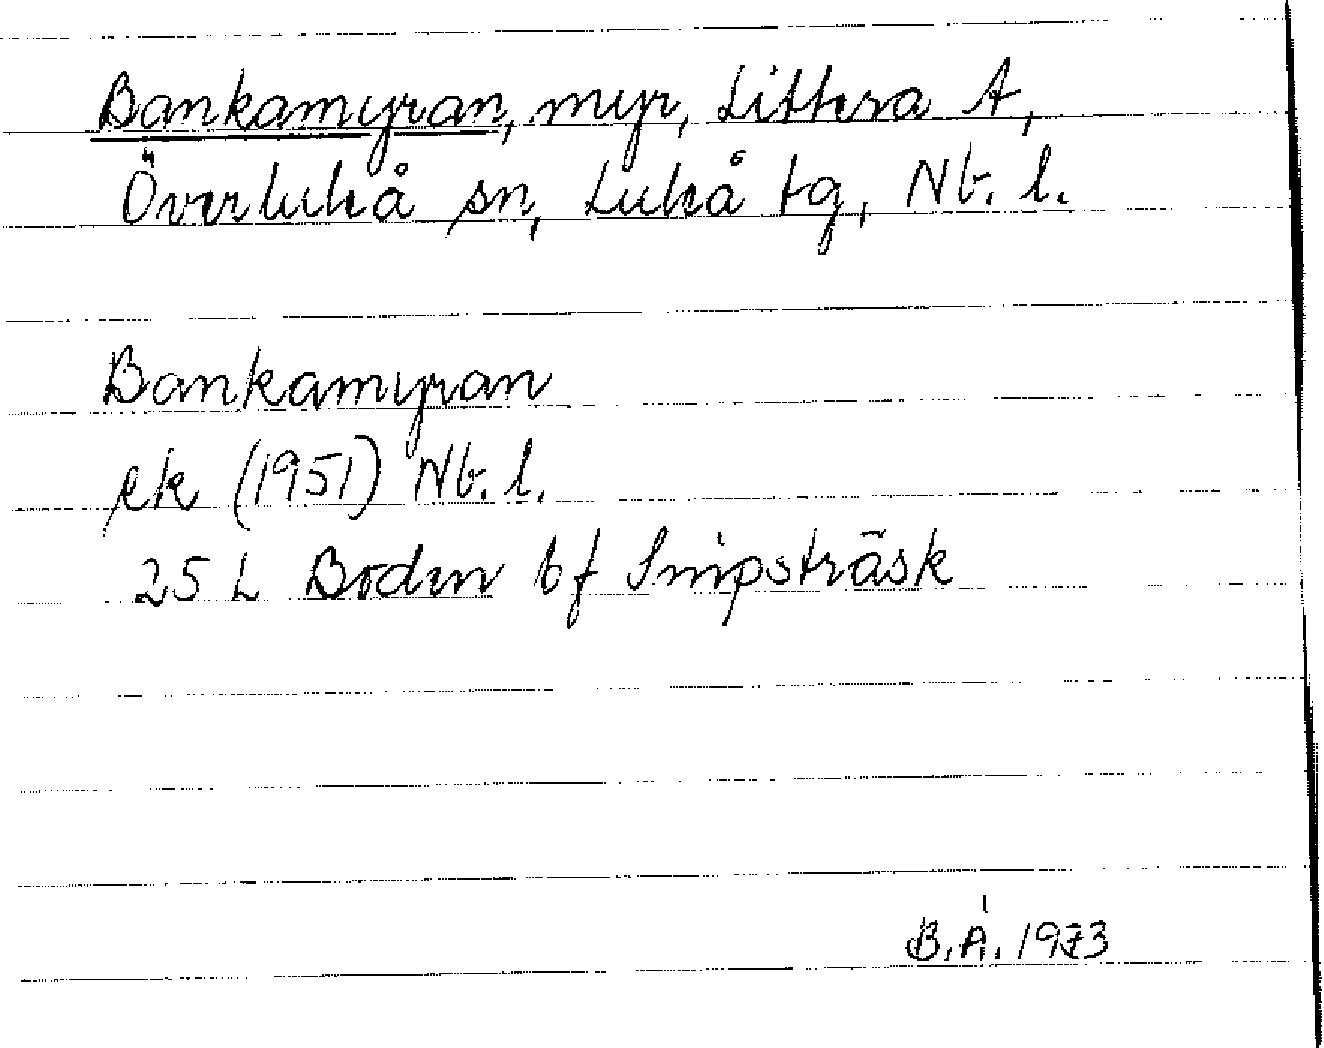 Bankamyran, myr, Littera A,
Överluleå sn, Luleå tg, Nb. l.
Bankamyran
ek (1951) Nb. l.
25 L Boden bf Snipsträsk
B.Å. 1973